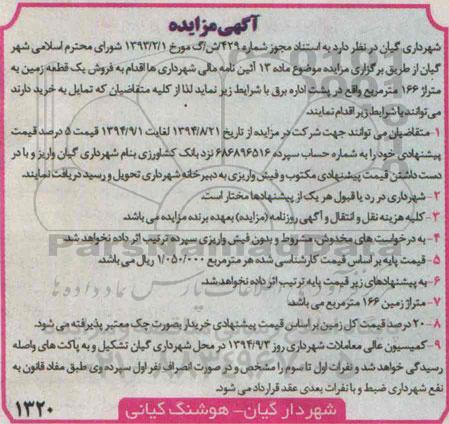 آگهی مزایده
شهرداری گیان در نظر دارد به استناد مجوز شماره ۴۲۹/ش/گ مورخ ۱۳۹۳/۲/۱ شورای محترم اسلامی شهر
گیان از طریق برگزاری مزایده موضوع ماده ۱۳ آئین نامه مالی شهرداری ها اقدام به فروش یک قطعه زمین به
متراژ ۱۶۶ مترمربع واقع در پشت اداره برق با شرایط زیر نماید لذا از کلیه متقاضیان که تمایل به خرید دارند
می‌توانند با شرایط زیر اقدام نمایند.
۱- متقاضیان می توانند جهت شرکت در مزایده از تاریخ ۱۳۹۴/۸/۲۱ لغایت ۱۳۹۴/۹/۱ قیمت ۵ درصد قیمت
پیشنهادی خود را به شماره حساب سپرده ۶۸۶۸۹۶۵۱۶ نزد بانک کشاورزی بنام شهرداری گیان واریز و با در
دست داشتن قیمت پیشنهادی مکتوب و فیش واریزی به دبیرخانه شهرداری تحویل و رسید دریافت نمایند.
۲- شهرداری در رد یا قبول هر یک از پیشنهادها مختار است.
۳- کلیه هزینه نقل و انتقال و آگهی روزنامه (مزایده) بعهده برنده مزایده می باشد.
۴- به درخواست های مخدوش، مشروط و بدون فیش واریزی سپرده ترتیب اثر داده نخواهد شد.
۵- قیمت پایه بر اساس قیمت کارشناسی شده هر مترمربع ۱/۰۵۰/۰۰۰ ریال می باشد.
۶- به پیشنهادهای زیر قیمت پایه ترتیب اثر داده نخواهد شد.
۷- متراژ زمین ۱۶۶ مترمربع می باشد.
۸- ۲۰ درصد قیمت کل زمین بر اساس قیمت پیشنهادی خریدار بصورت چک معتبر پذیرفته می شود.
۹- کمیسیون عالی معاملات شهرداری روز ۱۳۹۴/۹/۳ در محل شهرداری گیان تشکیل و به پاکت های واصله
رسیدگی خواهد شد و نفرات اول تا سوم را مشخص و در صورت انصراف نفر اول سپرده وی طبق مفاد قانون به
نفع شهرداری ضبط و با نفرات بعدی عقد قرارداد می شود.
شهردار گیان- هوشنگ کیانی
۱۳۲۰